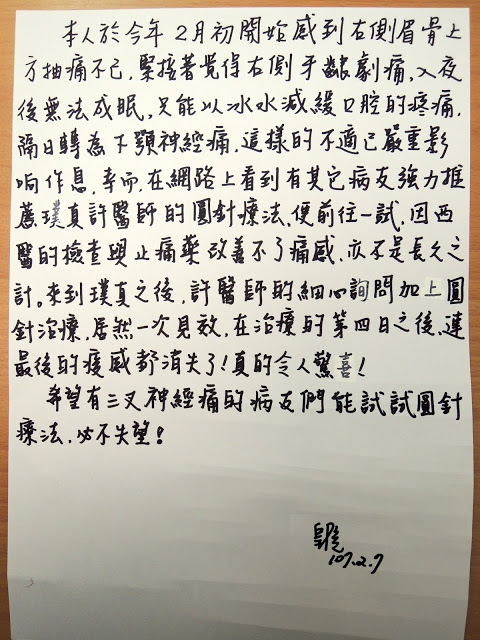 本人於今年2月初開始感到右側眉骨上
方抽痛不已,緊接著覺得右側牙齦劇痛,入夜
後無法成眠,只能以冰水減緩口腔的疼痛,
隔日轉為下顎神經痛,這樣的不適已嚴重影
响作息,幸而,在網路上看到有其它病友強力推
薦璞真許醫師的圓針療法,便前往一試,因西
醫的檢查與止痛藥改善不了痛感,亦不是長久之
計。來到璞真之後,許醫師的細心詢問加上圓
針治療,居然一次見效,在治療的第四日之後,連
最後的痠感都消失了!真的令人驚喜!
希望有三叉神經痛的病友們能試試圓針
療法,必不失望!
107.2.7